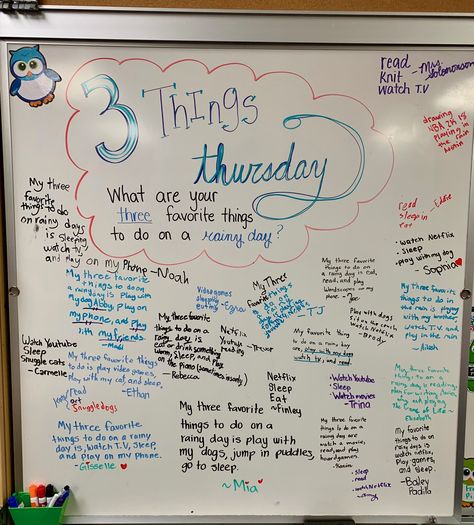 3 Things
Thursday
What are your
three favorite things
to do on a rainy day?
read
Knit
Watch T.V
-Mrs.
drawing
playing in
the rain
read
sleep in
eat
-Eddie
My three
favorite
things to do
on rainy days
is sleeping
watch tv
and play on my phone -Noah
- watch Netflix
- Sleep
- play with my dog
Sophia
My three favorite
things to do on
a rainy day is play with
my dog, play on
my phone, and play
with my friends.
Video games
sleeping
eating -Ezra
My Three
favorite
things to
do on
TJ
My three favorite
things to do on
a rainy day is eat, read, and
play
My three favorite
things to do on a
rainy day is
eat or drink something
warm, sleep, and play
on the piano (sometimes music)
- Rebecca
Netflix
Youtube
reading
-Trevor
My three favorite
thing to do on a rainy day
is play with my dog
watch tv, and read
Play with dogs
Sit on the couch
watch Netflix
- Brody
My three favorite
things to do in
the rain is
play with my dog
watch T.V. and
play in the rain
Watch YouTube
Sleep
Snuggle cats
- Carmelle
My three favorite things
to do is play video games,
Play with my cat, and sleep.
-Ethan
read
art
Snuggle dogs
My three favorite
things to do on a rainy
day is, watch T.V, Sleep,
and play on my phone.
-Gisselle
My three favorite
things to do on a
rainy day is play with
my dogs, jump in puddles,
go to sleep.
~Mia
Netflix
Sleep
Eat
~Finley
- Watch Youtube
- Sleep
- Watch movies
- Trina
My three favorite
things to do on a
rainy day are
watch a movie,
read, and play
board games.
- sleep
- read
- watch Netflix
My three favorite
things to do on
a rainy day is reading,
Elizabeth
My favorite
things to do on
rainy day is
watch Netflix,
Play games,
and Sleep.
- Bailey
Padilla